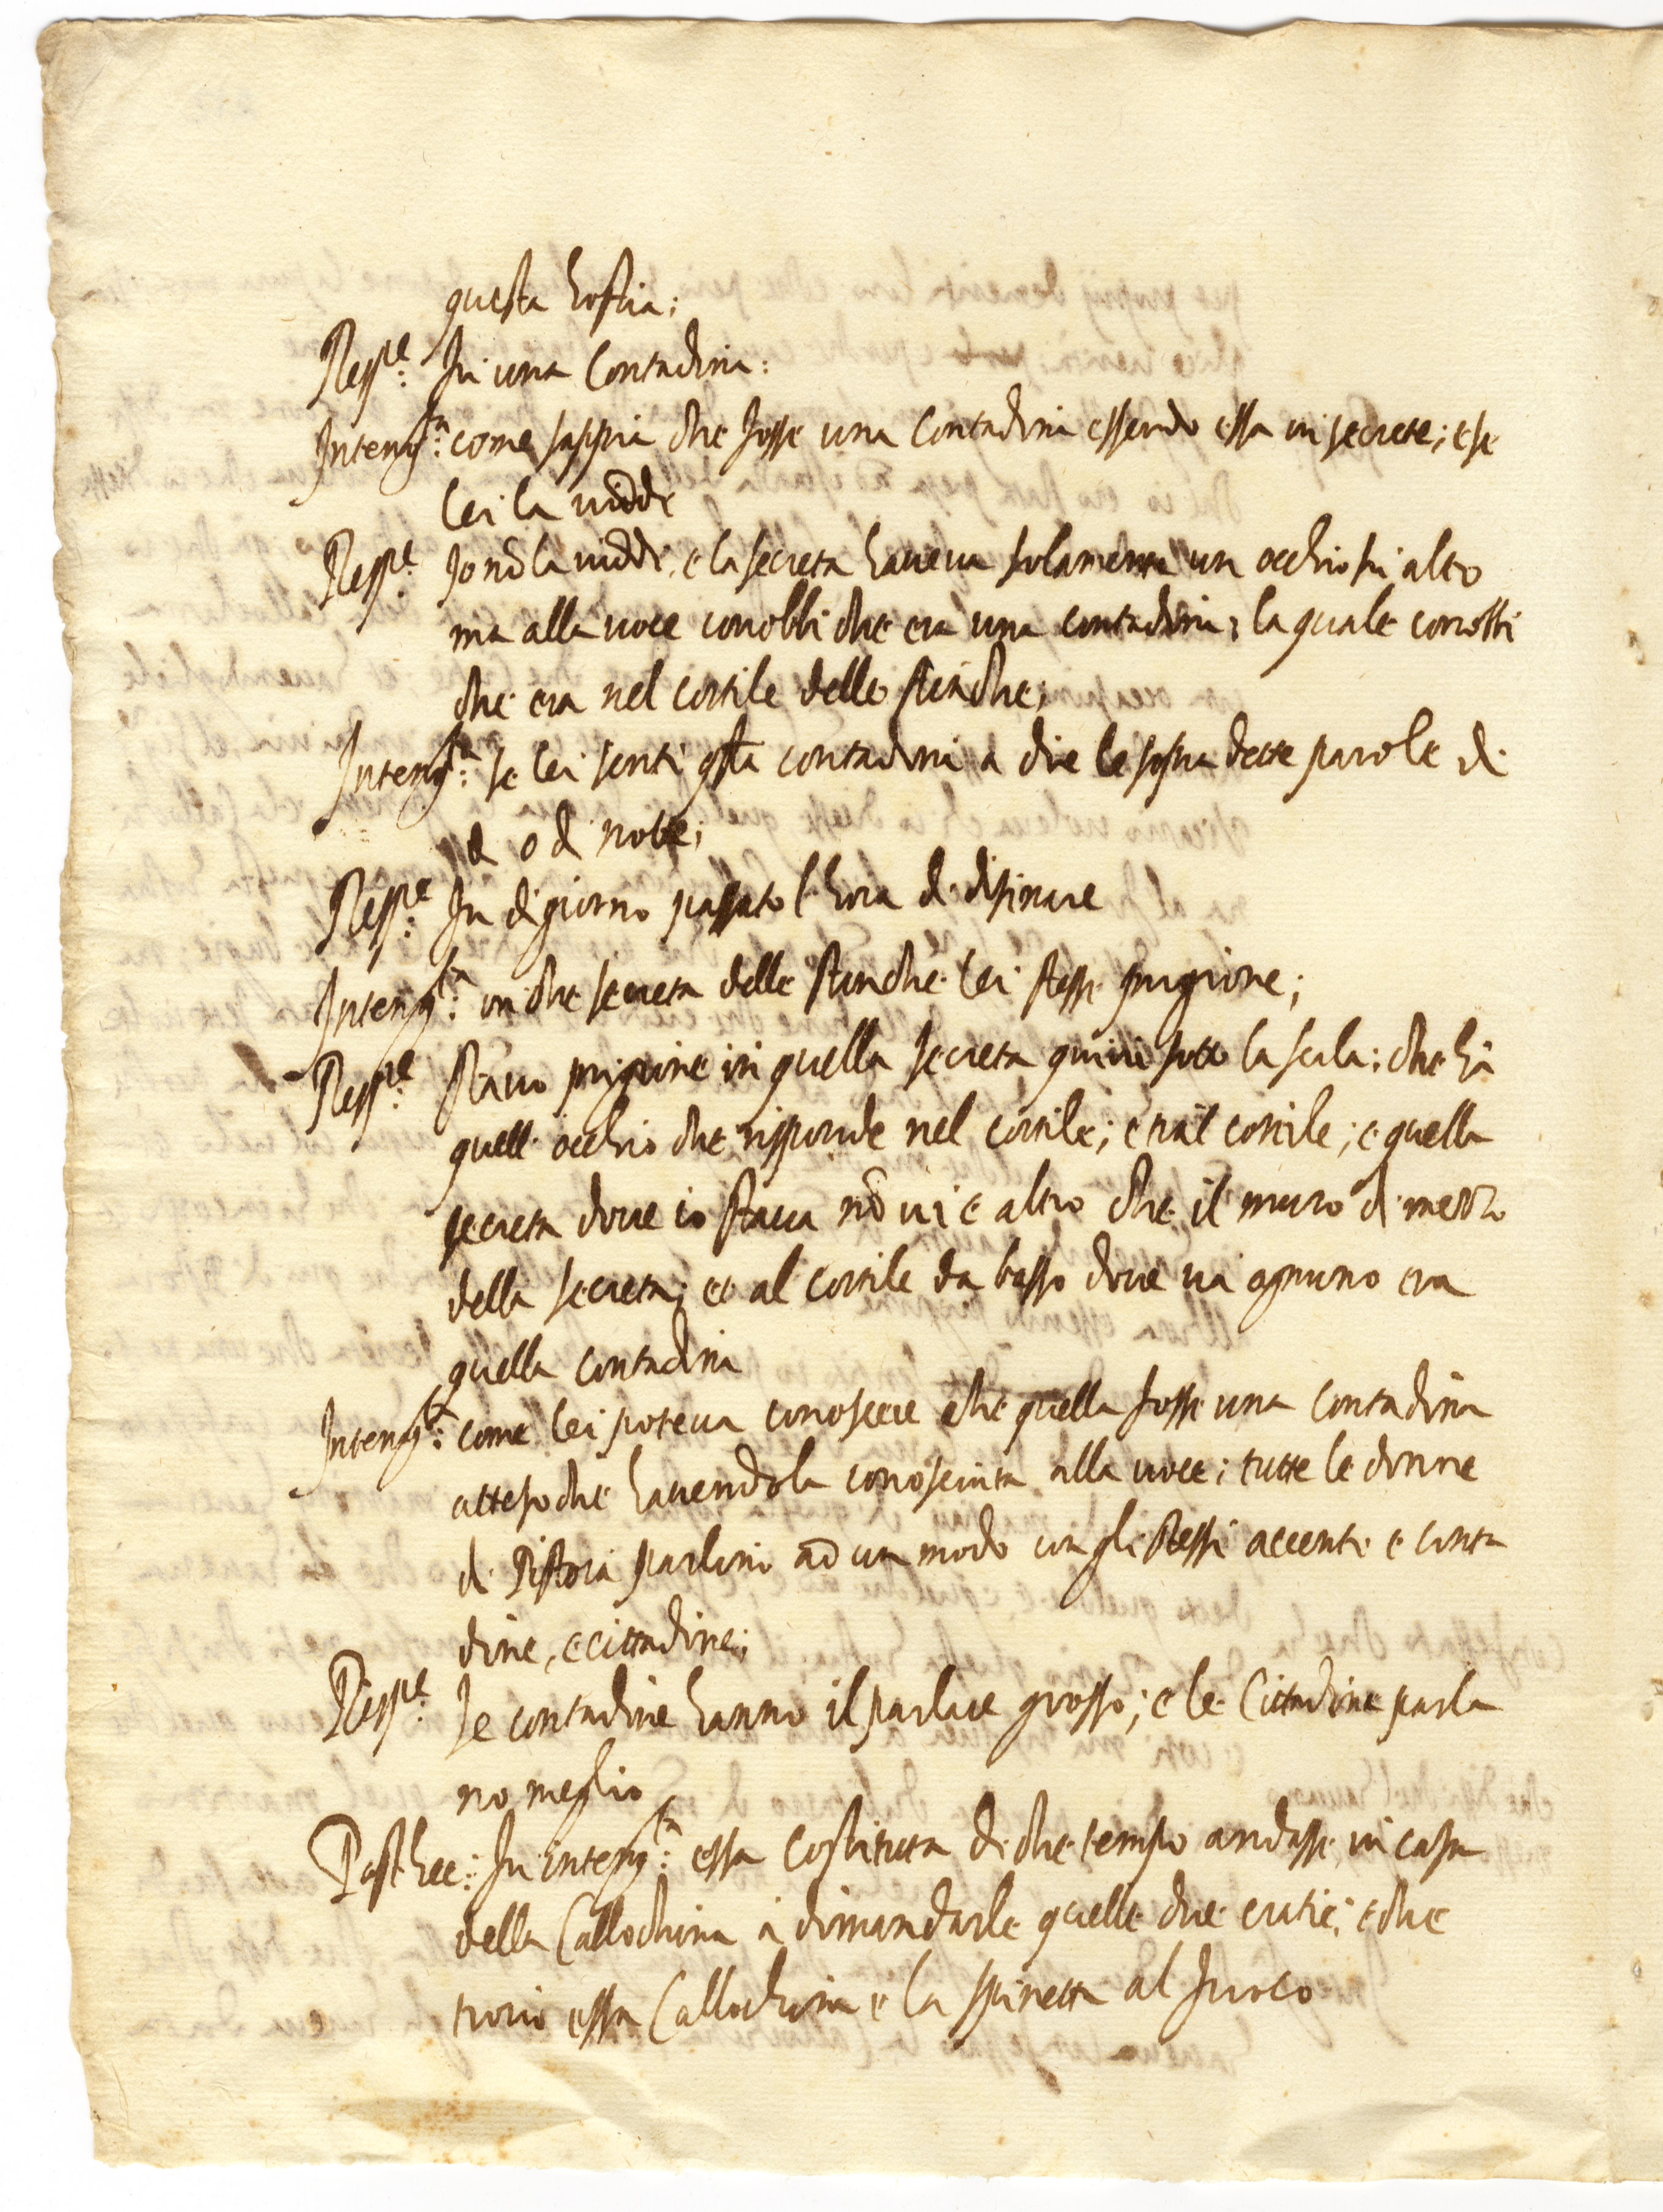 questa hostia;
Resp.e fu una Contadina:
Interrog.ta come sappia che fosse una Contadina essendo essa in secrete; e se
lei la vidde
Resp.e Io nō la viddi, e la secreta haveva solamente un occhio sù alto
ma alla voce conobbi che era una contadina; la quale conobbi
che era nel cortile delle stinche;
Interrog.ta se lei sentì qsta contadina a dire le sopra dette parole di
dì o di notte;
Resp.e fu di giorno passato l'hora di disinare
Interrog.ta in che secreta delle stinche lei stesse prigione;
Resp.e stavo prigione in quella secreta quivi sotto la scala: che hà
quell'occhio che risponde nel cortile; e trà il cortile; e quella
secreta dove io stava nō vi è altro che il muro di mezzo
della secreta; et al cortile da basso dove và ognuno era
quella contadina
Interrog.ta come lei poteva conoscere che quella fosse una contadina
atteso che havendola conosciuta alla voce; tutte le donne
di Pistoia parlono ad un modo con gli stessi accenti e conta
dine, e cittadine;
Resp.e le contadine hanno il parlare grosso; e le Cittadine parla
no meglio
Post hec: fu interrog.ta essa costituta di che tempo andasse in casa
della Callochina à dimandarle quelle due crazie; e che
trovò essa Callochina e la spinetta al fuoco